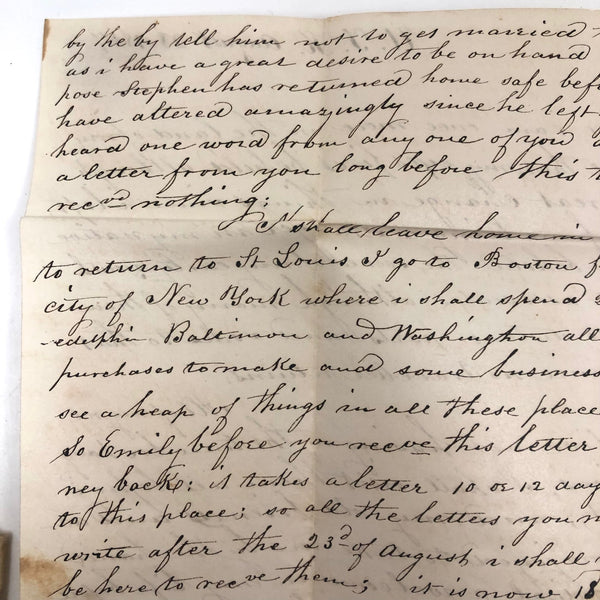 by the by tell him not to get married
as i have a great desire to be on hand
pose Stephen has returned home safe befo
have altered amazingly since he left
heard one word from any one of you
a letter from you long before this
recvd nothing;
I shall leave home in
to return to St Louis I go to Boston f
city of New York where i shall spend
-edelphia Baltimon and Washington all
purchases to make and some business
see a heap of things in all these place
So Emily before you recve this letter
ney back: it takes a letter 10 or 12 day
to this place; so all the letters you m
write after the 23d of August i shall
be here to recve them; it is now 18